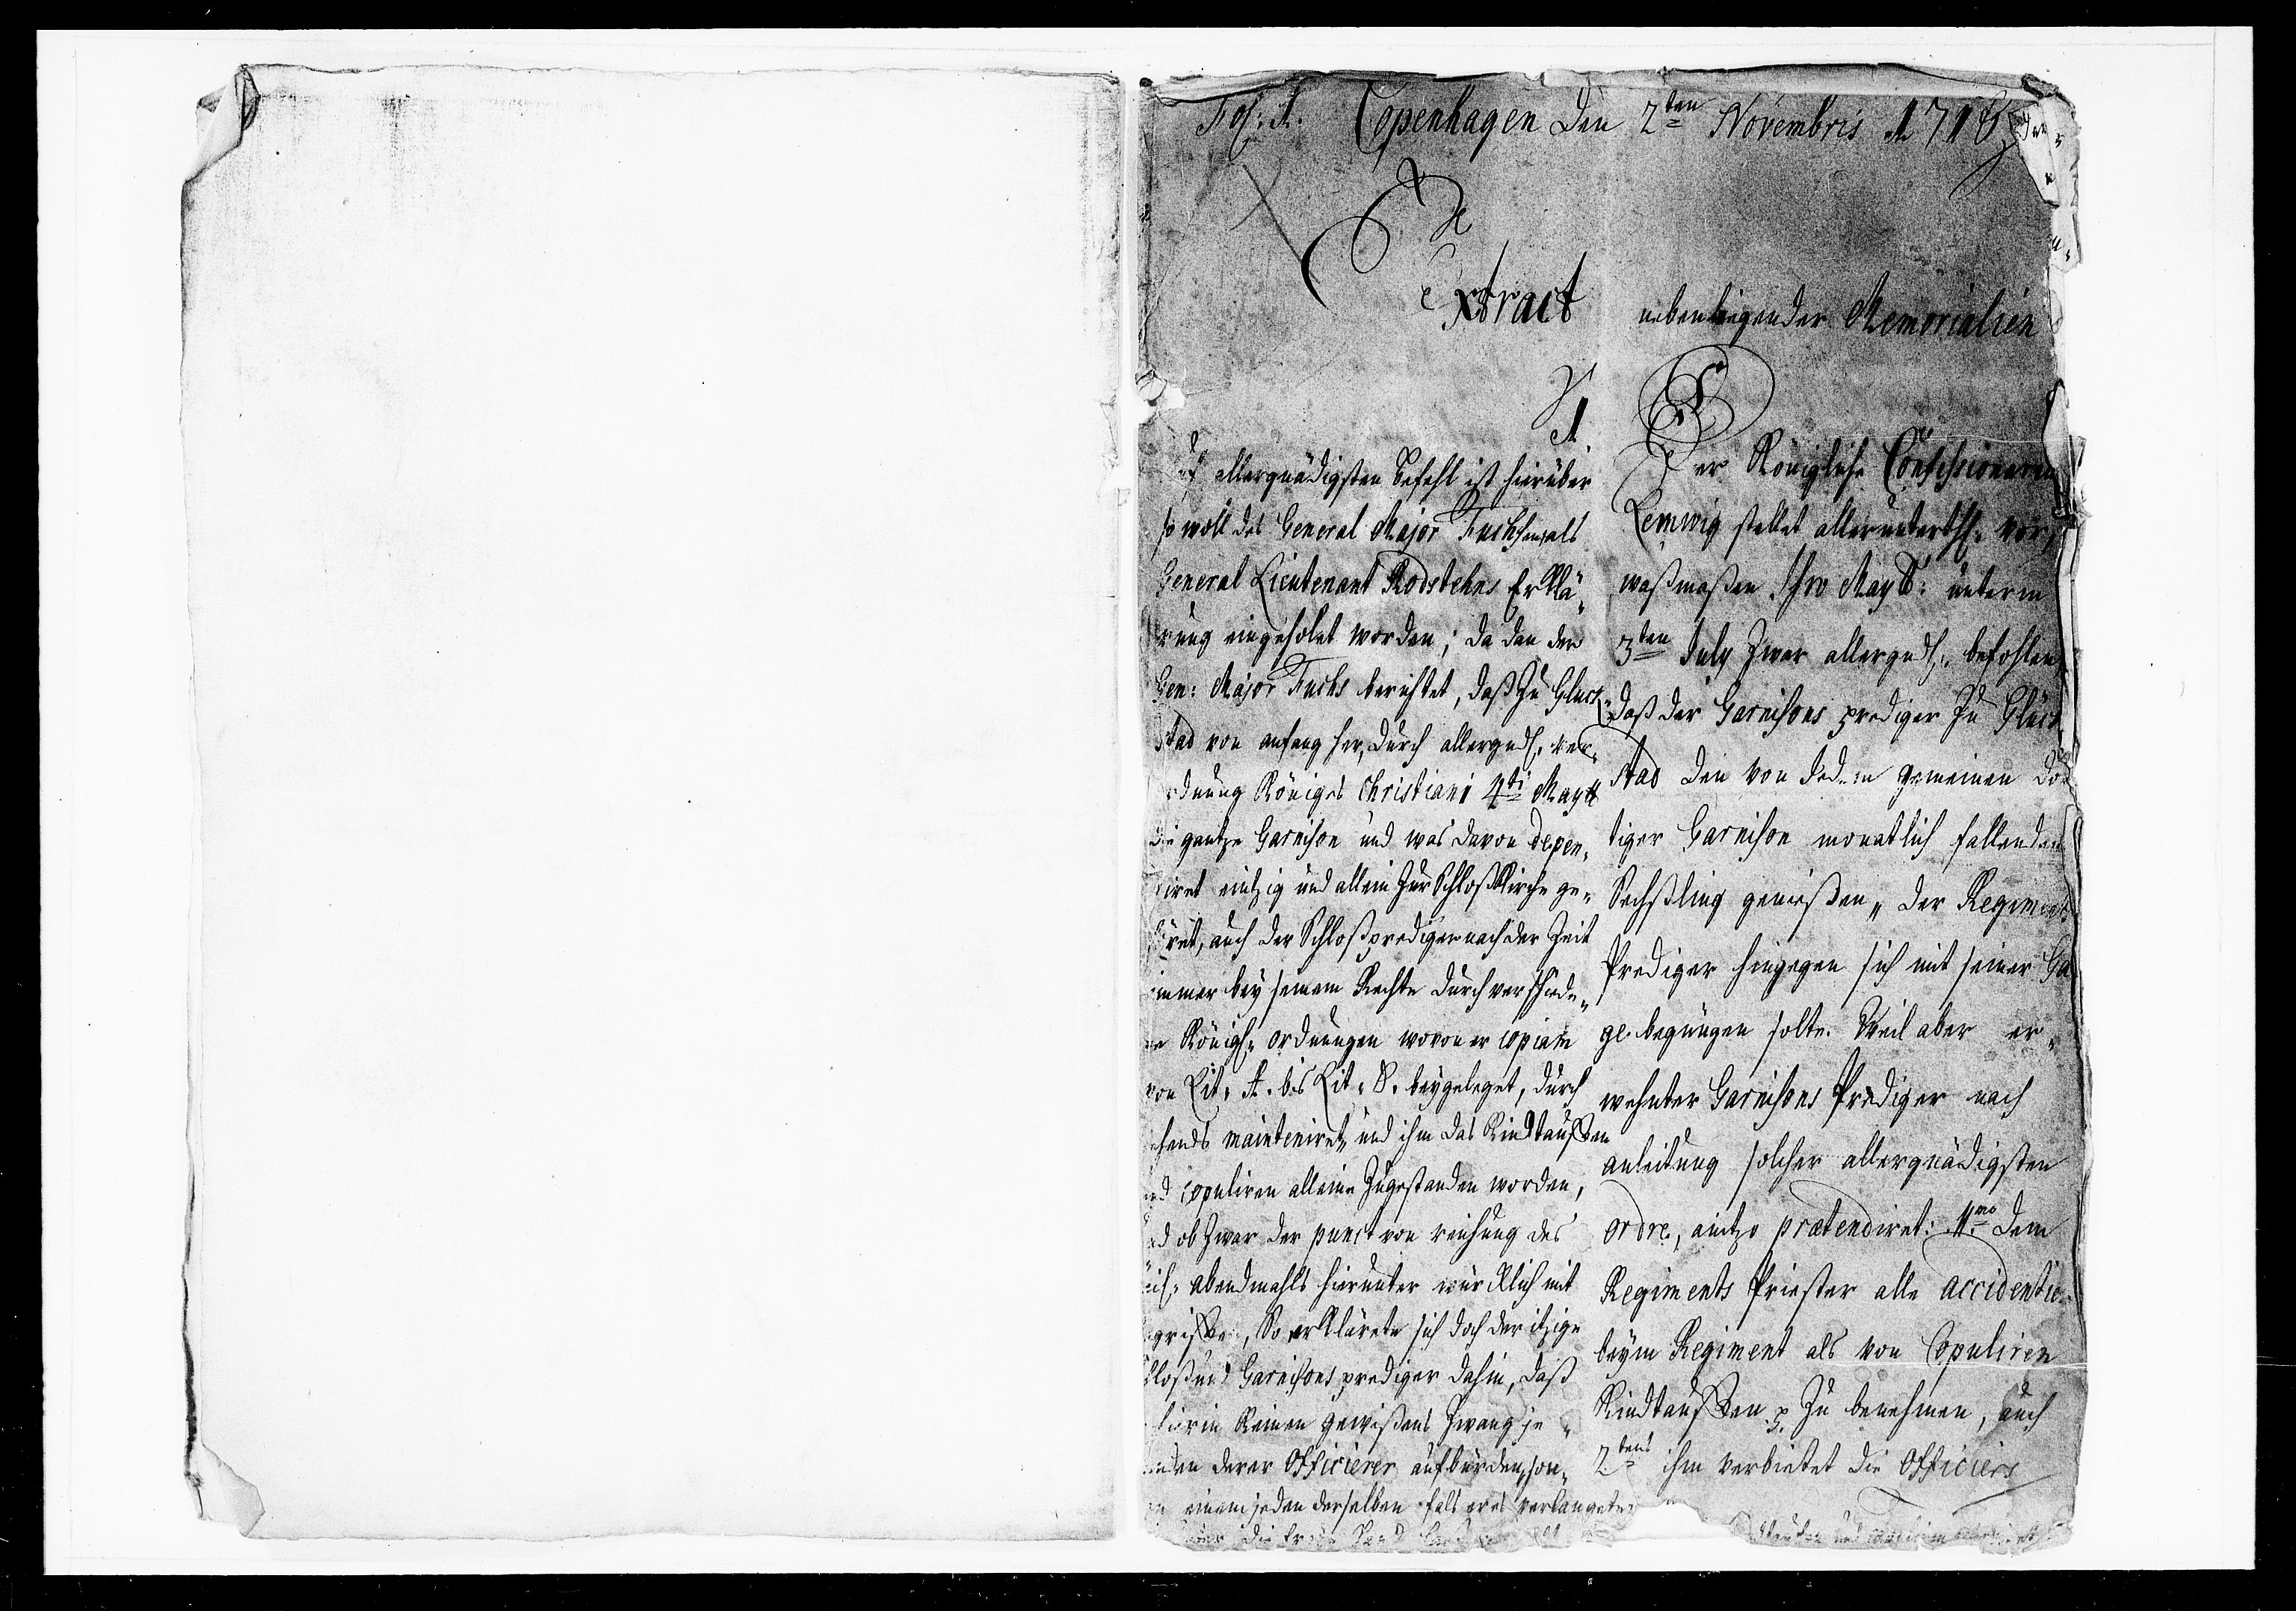 Fol: 1. Copenhagen den 2ten Novembris 1718
Extract
nebenliegender Memorialien
1.
Auf allergnädigsten Befehl ist hierüber
so woll des General Major Fuchsen, als
General Lieutenant Rodstehns Erklä-
rung eingeholet worden; da dan der
Gen: Major Fuchs berichtet, daß zu Glück
stad von anfang her, durch allergndst. ver-
ordnung Königs Christiani 4ti Maytt
die gantze Garnison und was davon depen-
diret eintzig und allein zur Schloßkirche ge-
höret, auch der Schloßprediger nach der Zeit
immer bey seinem Rechte durch verschiede-
ne Königl. ordnungen wovon er copiam
von Lit. A. bis Lit. beygeleget, durch
gehends mainteniret, und ihm das Kindtauffen
und copuliren alleine zugestanden worden,
und ob zwar der punct von reichung des
abendmahls hierunter würcklich mit
begriffen, So erklärete sich doch der itzige
Schloß und Garnisons prediger dahin, daß
hierin keinen gewißens zwang je-
manden derer Officierer aufbürden, son-
dern einem jeden derselben fals er es verlangete
Der Königliche Confessionarius
Lemwig stellet allerunterthl. vor,
waßmaßen Ihro Maytt: unterm
3ten July zwar allergndl. befohlen,
daß der Garnisons prediger zu Glück
stad den von jedem gemeinen dor
tiger Garnison monatlich fallenden
Sechßling genießen, der Regiments
Prediger hingegen sich mit seiner Ga
ge begnügen solte. Weil aber er-
wehnter Garnisons Prediger nach
anleitung solcher allergnädigsten
ordre, anitzo prætendiret: 1mo dem
Regiments Priester alle accidentien
beym Regiment als von Copuliren
Kindtauffen p. zu benehmen, auch
2tens ihm verbietet die Officiers